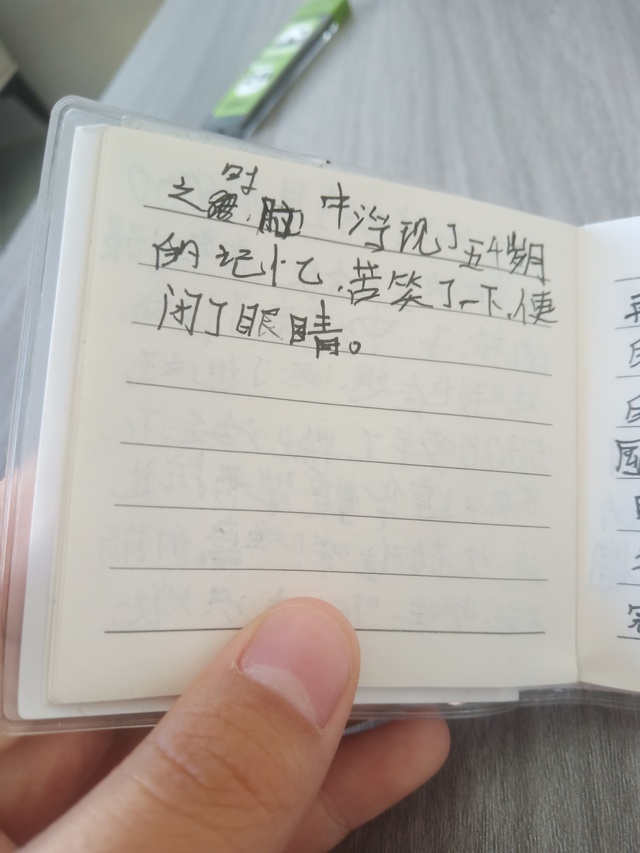 之时,脑中浮现了五4岁月
的记忆,苦笑了一下,便
闭了眼睛。